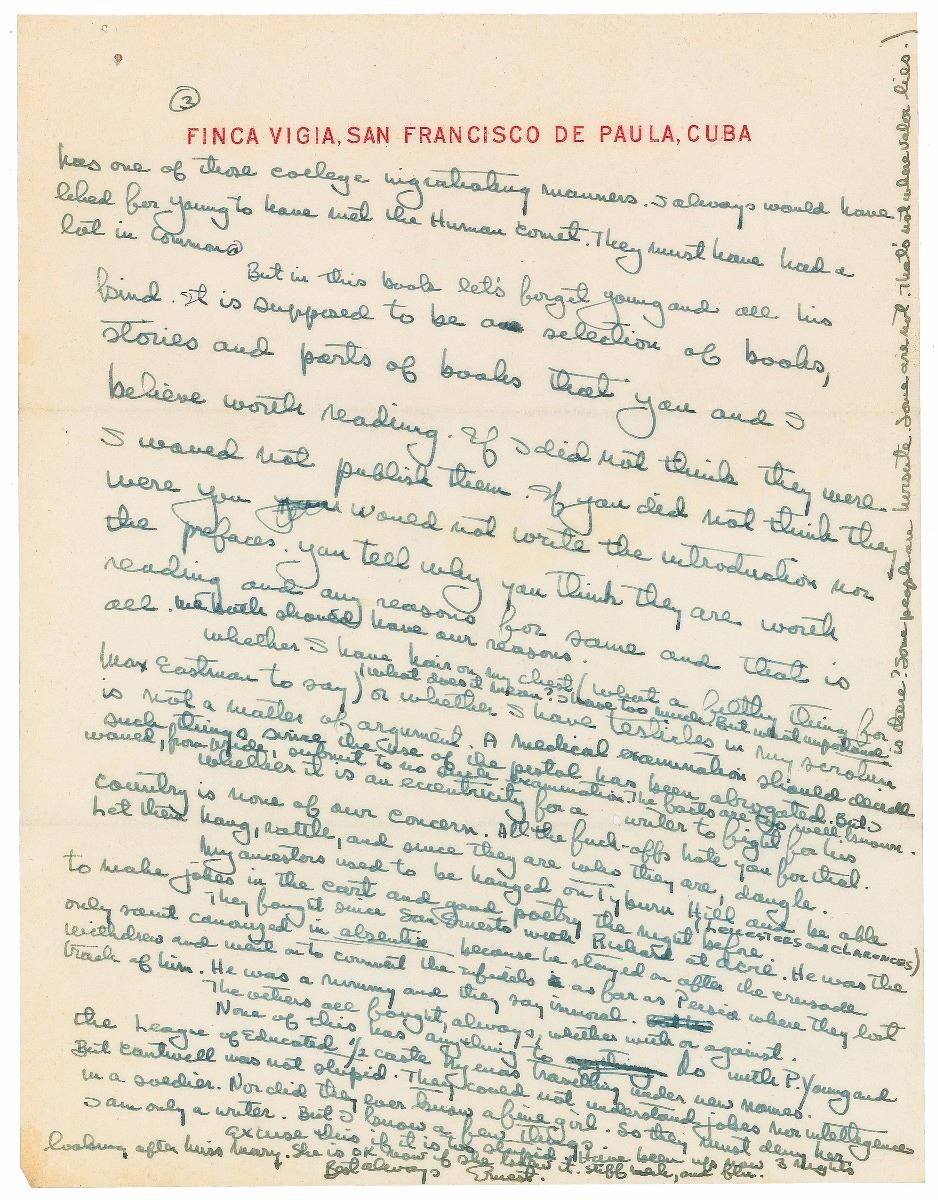 ③
FINCA VIGIA, SAN FRANCISCO DE PAULA, CUBA
has one of those college ingratiating manners. I always would have
liked for Young to have met the Human Comet. They must have had a
lot in common.
But in this book let's forget Young and all his
kind. It is supposed to be a selection of books,
stories and parts of books that you and I
believe worth reading. If I did not think they were
I would not publish them. If you did not think they
were you would not write the introduction nor
the prefaces. You tell why you think they are worth
reading and any reasons for same and that is
all. We both should have our reasons.
Whether I have hair on my chest (what a filthy thing for
Max Eastman to say) (what does it mean? I have too much. But what importance
is there? Some people are hirsute. Some are not. That's not where valor lies.)
or whether I have testicles in my scrotum
is not a matter of argument. A medical examination should decide
such things since the use of the pistol has been abrogated. But I
would, from pride, submit to no such examination. The facts are too well known.
Whether it is an eccentricity for a writer to fight for his
country is none of our concern. All the fuck-offs hate you for that.
Let them hang, rattle, and since they are who they are, dangle.
My ancestors used to be hanged on Tyburn Hill and be able
to make jokes in the cart and good poetry the night before.
(Leicesters and Clarences)
They fought since San Ernesto with Richard at Acre. He was the
only saint canonized in absentia because he stayed on after the crusade
withdrew and went on to convert the infidels as far as Persia where they lost
track of him. He was a rummy and they say immoral.
The others all fought, always, whether with or against.
None of this has anything to do with P. Young and
the League of Educated 1/2 caste travelling under new names.
But Cantwell was not stupid. They could not understand jokes nor intelligence
in a soldier. Nor did they ever know a fine girl. So they must deny her.
I am only a writer. But I know a few things.
Excuse this if it is stupid. Have been up now 3 nights
looking after Miss Mary. She is OK now if she takes it. Stiff neck, and flu.
Best always
Ernest.